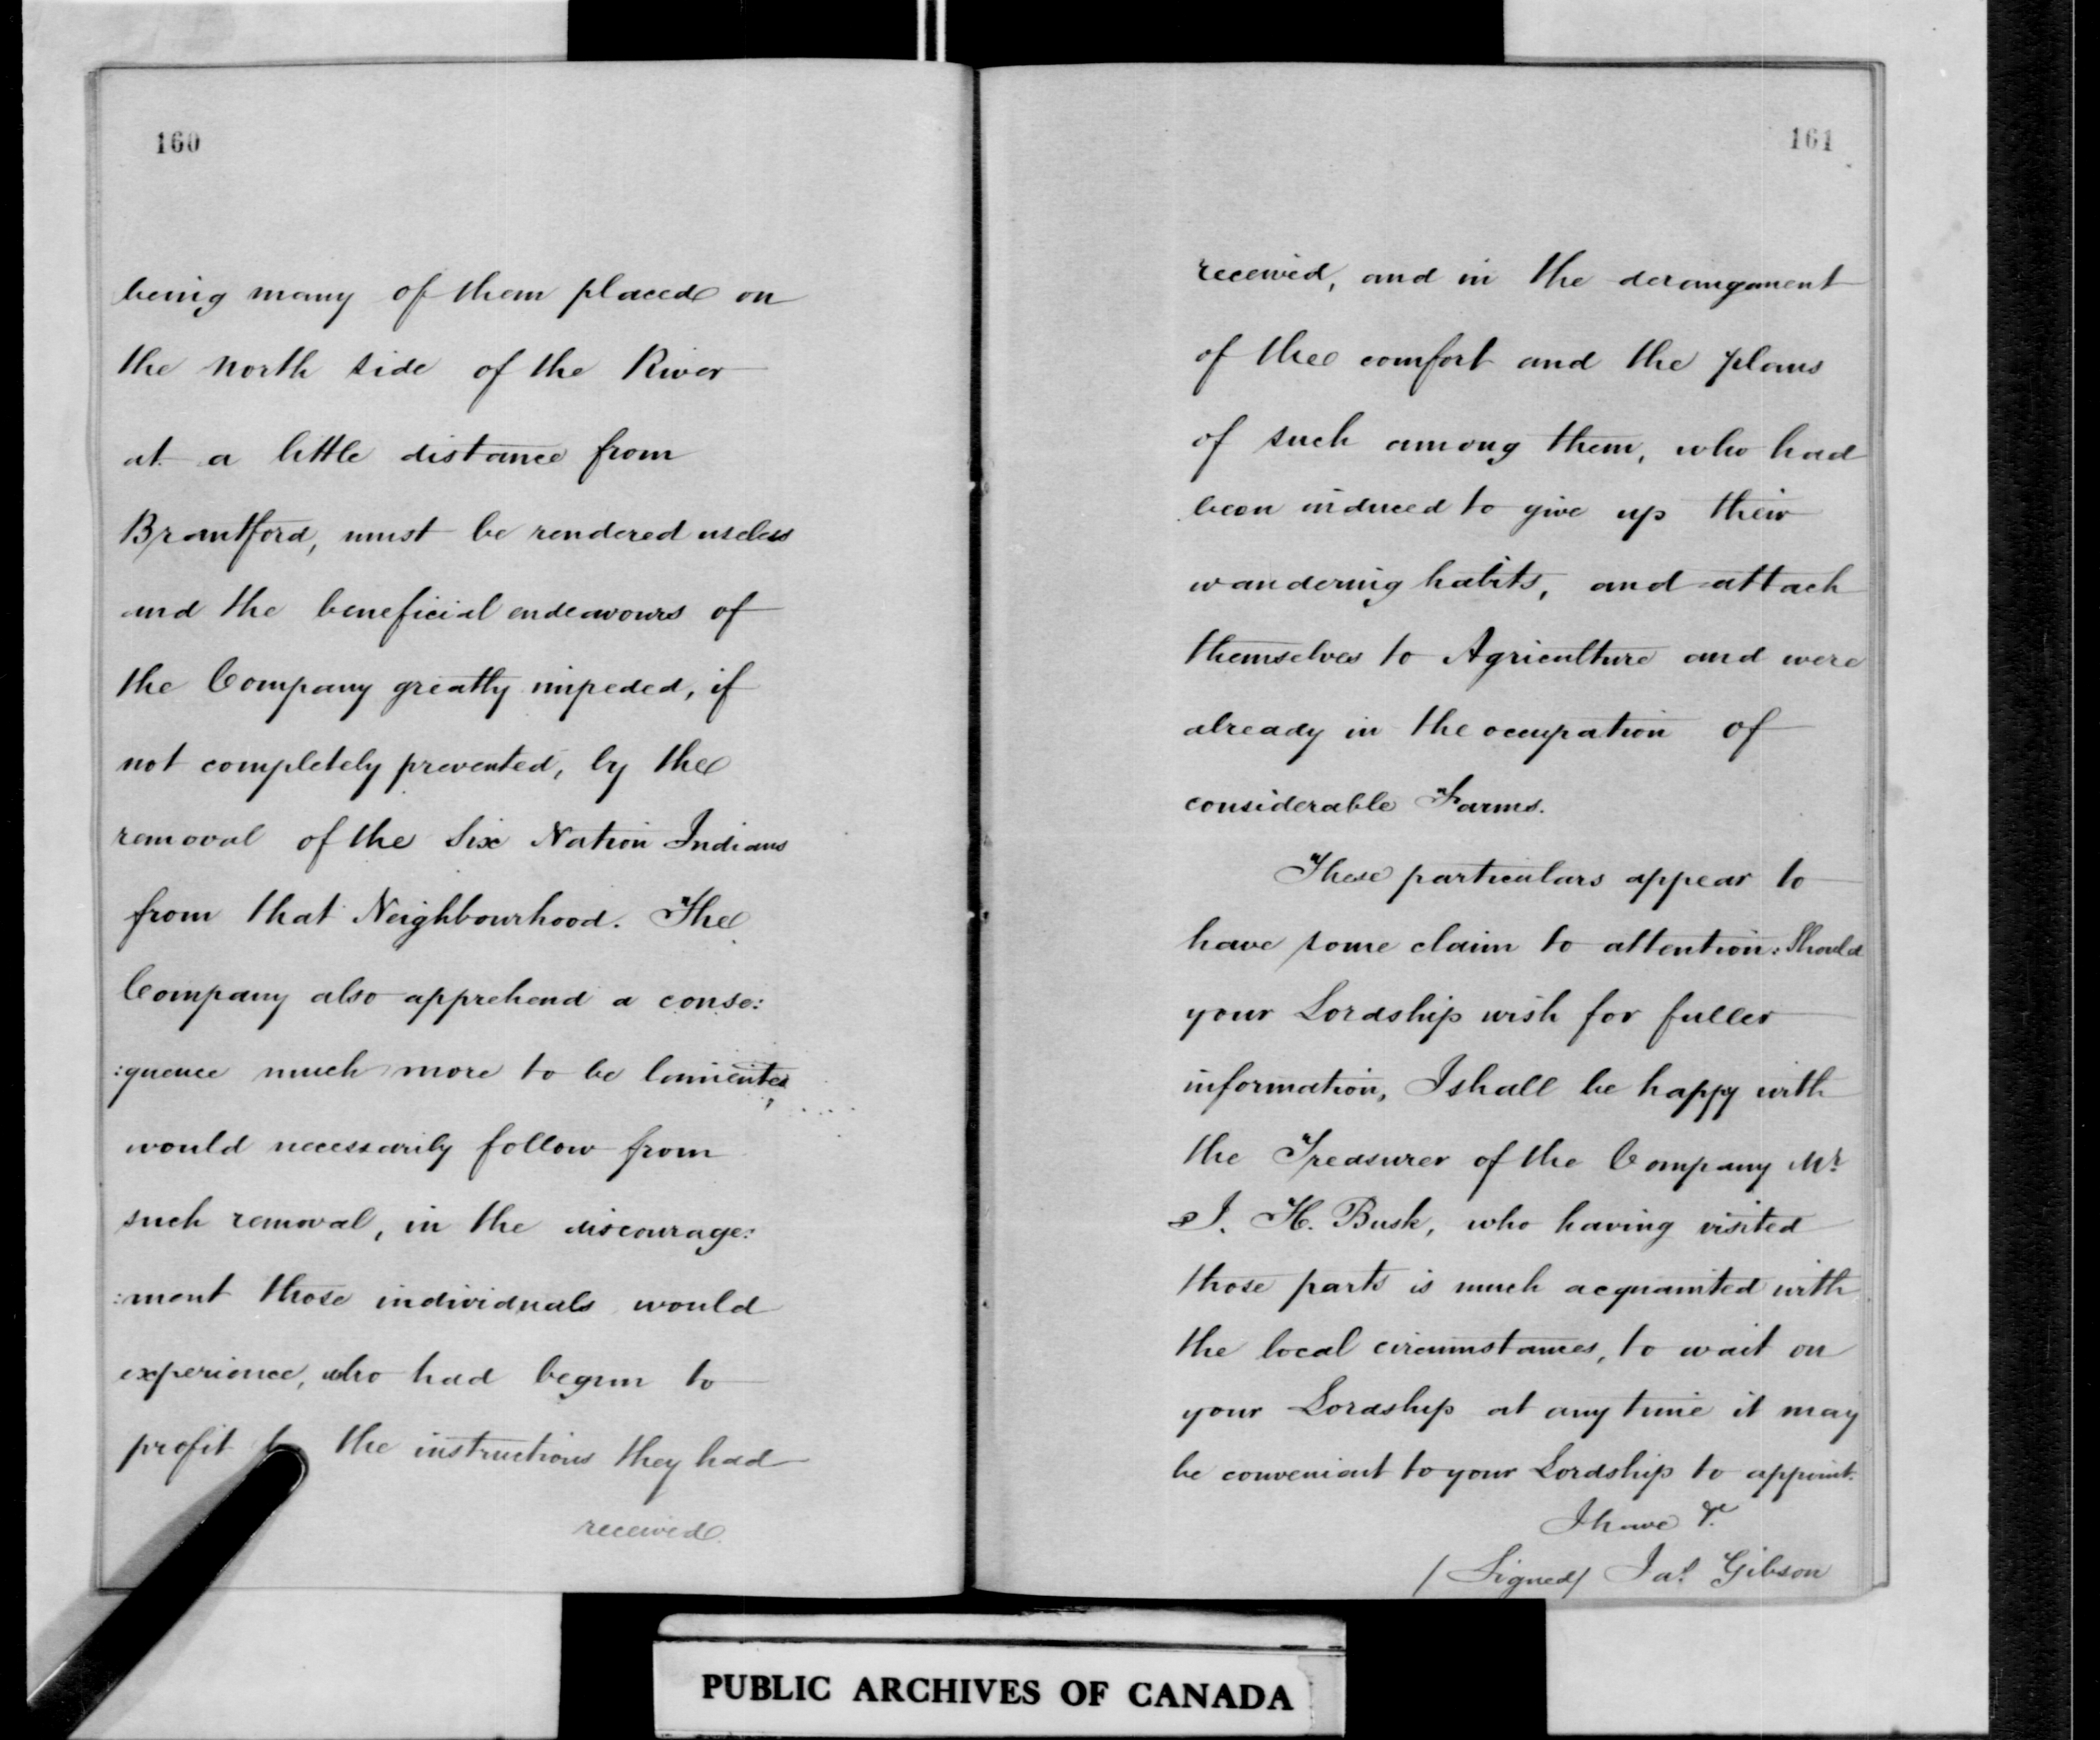 160
being many of them placed on
the north side of the River
at a little distance from
Brantford, must be rendered useless
and the beneficial endeavours of
the Company greatly impeded, if
not completely prevented, by the
removal of the Six Nation Indians
from that Neighbourhood. The
Company also apprehend a conse:
:quence much more to be lamented,
would necessarily follow from
such removal, in the discourage:
:ment those individuals would
experience, who had begun to
profit the instructions they had
received.
161
received, and in the derangement
of the comfort and the plans
of such among them, who had
been induced to give up their
wandering habits, and attach
themselves to Agriculture and were
already in the occupation of
considerable Farms.
These particulars appear to
have some claim to attention: Should
your Lordship wish for fuller
information, I shall be happy with
the Treasurer of the Company Mr
J. H. Busk, who having visited
those parts is much acquainted with
the local circumstances, to wait on
your Lordship at any time it may
be convenient to your Lordship to appoint.
I have &c
(Signed) Jas Gibson
PUBLIC ARCHIVES OF CANADA